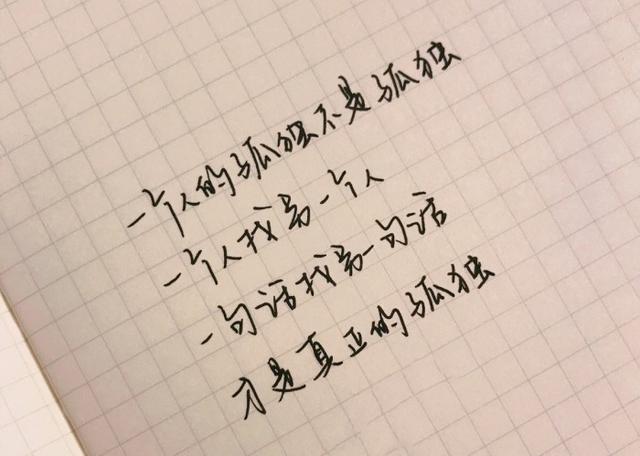 一个人的孤独不是孤独
一个人找另一个人
一句话找另一句话
才是真正的孤独